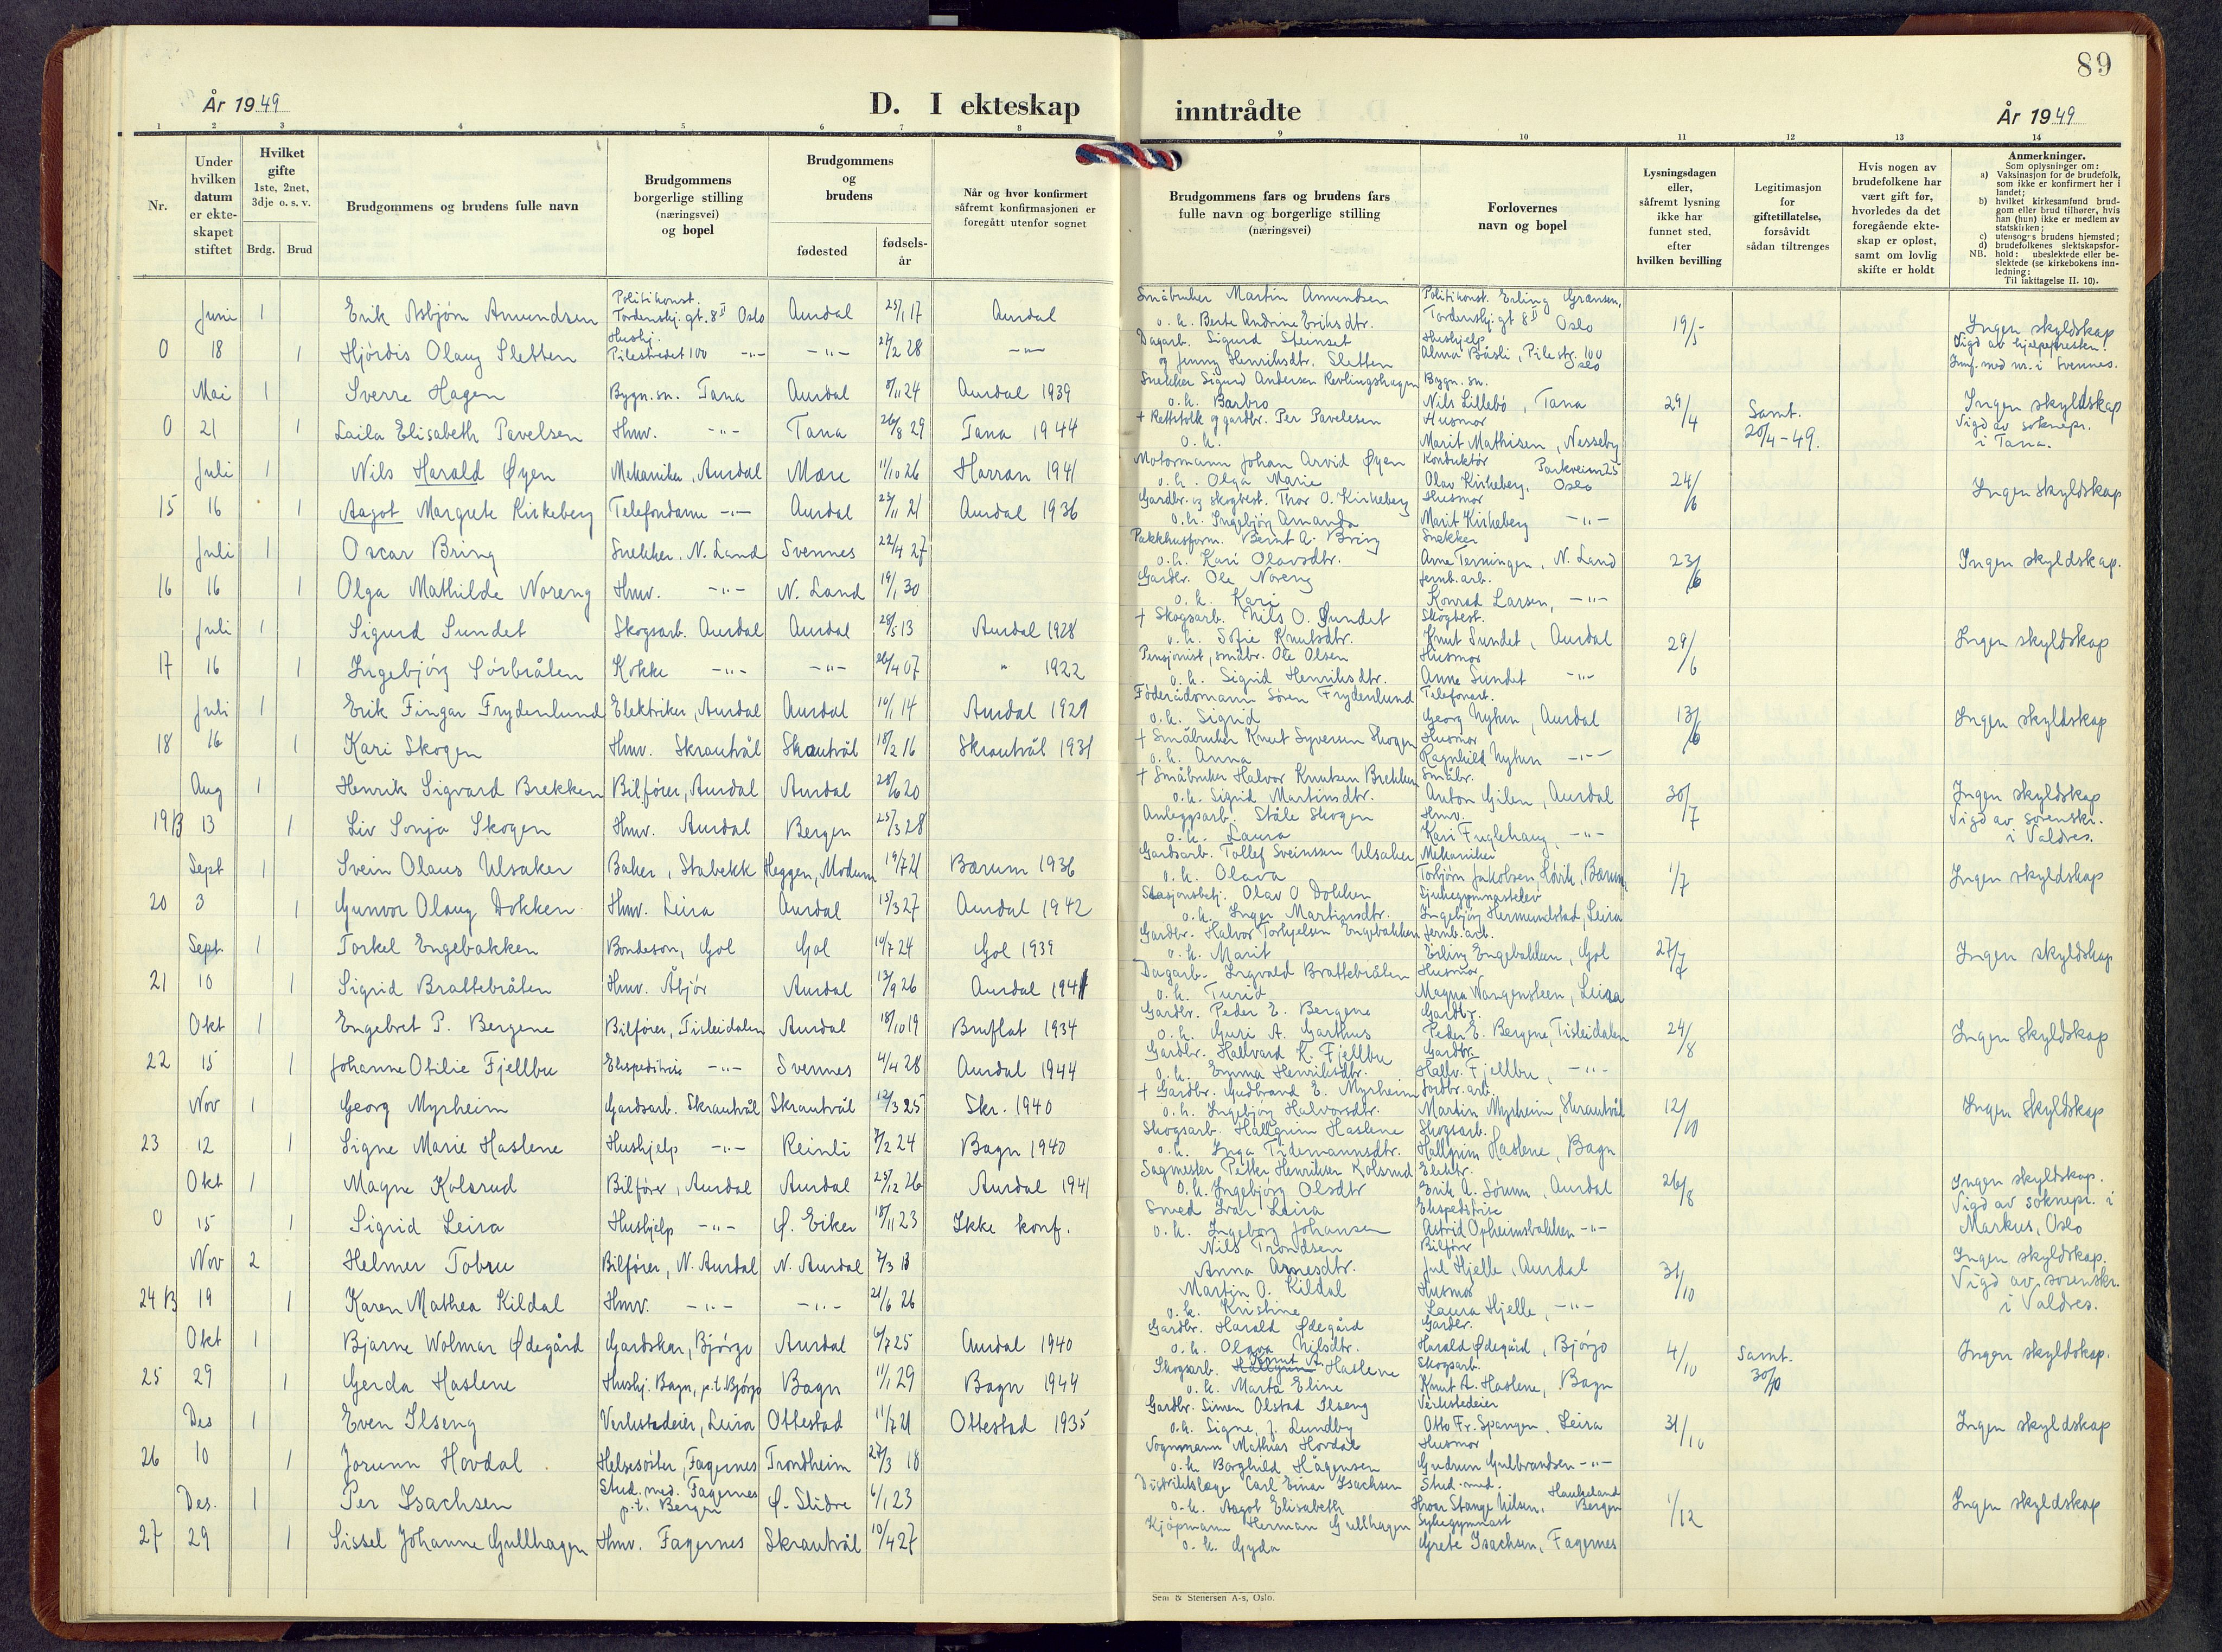 89
År 1949
D. I ekteskap inntrådte
År 1949
1 2 3 4 5 6 7 8 9 10 11 12 13 14
Nr.
Under hvilken datum er ekteskapet stiftet
Hvilket gifte 1ste, 2net, 3dje o. s. v.
Brdg. Brud
Brudgommens og brudens fulle navn
Brudgommens borgerlige stilling (næringsvei) og bopel
Brudgommens og brudens
fødested
fødselsår
Når og hvor konfirmert såfremt konfirmasjonen er foregått utenfor sognet
Brudgommens fars og brudens fars fulle navn og borgerlige stilling (næringsvei)
Forlovernes navn og bopel
Lysningsdagen eller, såfremt lysning ikke har funnet sted, efter hvilken bevilling
Legitimasjon for giftetillatelse, forsåvidt sådan tiltrenges
Hvis nogen av brudefolkene har vært gift før, hvorledes da det foregående ekteskap er opløst, samt om lovlig skifte er holdt
Anmerkninger.
Som oplysninger om:
a) Vaksinasjon for de brudefolk, som ikke er konfirmert her i landet;
b) hvilket kirkesamfund brudgom eller brud tilhører, hvis han (hun) ikke er medlem av statskirken;
c) utensogns brudens hjemsted;
d) brudefolkenes slektskapsforhold: ubeslektede eller beslektede (se kirkebokens innledning:
NB. Til iakttagelse II. 10).
Juni 1 Erik Asbjørn Amundsen Politikonst. Tordenskj. gt. 8 II Oslo Aurdal 25/1 17 Aurdal Småbruker Martin Amundsen o. h. Berte Andrine Eriksdtr. Politikonst. Erling Gransen, Tordenskj. gt 8 II Oslo 19/5 Ingen skyldskap
0 18 1 Hjördis Olaug Sletten Hushj. Pilestredet 100 -"- -"- 27/2 28 -"- Dagarb. Sigurd Steinset og Jenny Henriksdt. Sletten Hushjelp Alma Båsli, Pilestr. 100 Oslo Vigd av hjelpepresten. Innf. med nr. i Svennes.
Mai 1 Sverre Hagen Bygn.sn. Tana Aurdal 8/11 24 Aurdal 1939 Snekker Sigurd Andersen Revlingshagen o. h. Barbro Bygn. sn. Nils Lillebö, Tana 29/4 Samt. 20/4-49. Ingen skyldskap
0 21 1 Laila Elisabeth Pavelsen Hmv. -"- Tana 26/8 29 Tana 1944 + Rettstolk og gardbr. Per Pavelesen o. h. Husmor Marit Mathisen, Nesseby Vigd av soknepr. i Tana.
Juli 1 Nils Harald Øyen Mekaniker, Aurdal Mære 11/10 26 Harran 1941 Motormann Johan Arvid Øyen o. h. Olga Marie Konduktör Olav Kirkeberg, Parkveien 25 Oslo 24/6 Ingen skyldskap
15 16 1 Aagot Margrete Kirkeberg Telefondame -"- Aurdal 23/11 21 Aurdal 1936 Gardbr. og skogbest. Thor O. Kirkeberg o. h. Ingebjörg Amanda Husmor Marit Kirkeberg -"-
Juli 1 Oscar Bring Snekker. N. Land Svennes 22/4 27 Pakkhusform. Bernt A. Bring o. h. Kari Olavsdtr. Snekker Arne Terningen, N. Land 23/6 Ingen skyldskap.
16 16 1 Olga Mathilde Noreng Hmv. -"- N. Land 19/1 30 Gardbr. Ole Noreng o. h. Kari Jernb. arb. Konrad Larsen, -"-
Juli 1 Sigurd Sundet Skogsarb. Aurdal Aurdal 28/5 13 Aurdal 1928 + Skogsarb. Nils O. Sundet o. h. Sofie Knutsdtr. Skogbest. Knut Sundet, Aurdal 29/6 Ingen skyldskap
17 16 1 Ingebjörg Sörbråten Kokke -"- -"- 26/4 07 " 1922 Pensjonist, småbr. Ole Olsen o. h. Sigrid Henriksdtr. Husmor Anne Sundet -"-
Juli 1 Erik Fingar Frydenlund Elektriker, Aurdal Aurdal 10/1 14 Aurdal 1929 Föderådsmann Sören Frydenlund o. h. Sigrid Telefonart. Georg Nyhun, Aurdal 13/6 Ingen skyldskap
18 16 1 Kari Skogen Hmv. Skrautvål Skrautvål 18/2 16 Skrautvål 1931 + Småbruker Knut Syversen Skogen o. h. Anna Husmor Ragnhild Nyhun -"-
Aug 1 Henrik Sigvard Brekken Bilförer, Aurdal Aurdal 28/6 20 + Småbruker Halvor Knutsen Brekken o. h. Sigrid Martinsdtr. Småbr. Anton Gilen, Aurdal 30/7 Ingen skyldskap
19 B 13 1 Liv Sonja Skogen Hmv. Aurdal Bergen 25/3 28 Anleggsarb. Ståle Skogen o. h. Laura Hmv. Kari Fuglehaug, -"- Vigd av sorenskr. i Valdres.
Sept 1 Svein Olaus Ulsaker Baker, Stabekk Heggen, Modum 19/7 21 Bærum 1936 Gardsarb. Tollef Sveinssen Ulsaker o. h. Olava Mekaniker Torbjörn Jakobsen, Hövik, Bærum 1/7 Ingen skyldskap
20 3 1 Gunvor Olaug Dokken Hmv. Leira Aurdal 13/3 27 Aurdal 1942 Stasjonsbetj. Olav O Dokken o. h. Inger Martinsdtr. Sjukegymnastelev Ingebjörg Hermundstad, Leira
Sept. 1 Torkel Engebakken Bondeson, Gol Gol 10/7 24 Gol 1939 Gardbr. Halvor Torkjelsen Engebakken o. h. Marit Jernb. arb. Erling Engebakken, Gol 27/7 Ingen skyldskap
21 10 1 Sigrid Brattebråten Hmv. Åbjör Aurdal 13/9 26 Aurdal 1941 Dagarb. Ingvald Brattebråten o. h. Turid Husmor Magna Wangensteen, Leira
Okt 1 Engebret P. Bergene Bilförer, Tisleidalen Aurdal 18/10 19 Bruflat 1934 Gardbr. Peder E. Bergene o. h. Guri A. Garthus Gardbr. Peder E. Bergene, Tisleidalen 24/8 Ingen Skyldskap
22 15 1 Johanne Otilie Fjellbu Ekspeditrise -"- Svennes 4/4 28 Aurdal 1944 Gardbr. Hallvard K. Fjellbu o. h. Emma Henriksdtr. Gardbr. Hallv. Fjellbu, -"-
Nov 1 Georg Myrheim Gardsarb. Skrautvål Skrautvål 12/3 25 Skr. 1940 + Gardbr. Gudbrand E. Myrheim o. h. Ingebjörg Halvorsdtr. Jordbr. arb. Martin Myrheim, Skrautvål 12/10 Ingen Skyldskap
23 12 1 Signe Marie Haslene Hushjelp -"- Reinli 7/2 24 Bagn 1940 Skogsarb. Hallgrim Haslene o. h. Inga Tidemannsdtr. Skogsarb. Hallgrim Haslene, Bagn
Okt 1 Magne Kolsrud Bilförer, Aurdal Aurdal 25/12 26 Aurdal 1941 Sagmester Petter Henriksen Kolsrud o. h. Ingebjörg Olsdtr Elektr. Erik A. Sörum, Aurdal 26/8 Ingen skyldskap.
0 15 1 Sigrid Leira Hushjelp -"- Ø. Eiker 18/11 23 Ikke konf. Smed Ivar Leira o. h. Ingeborg Johansen Ekspeditrise Astrid Opheimsbakken -"- Vigd av soknepr. i Markus, Oslo
Nov 2 Helmer Tobru Bilförer, N. Aurdal N. Aurdal 7/3 13 Nils Trondsen Anna Arnesdtr. Bilförer Jul Hjelle, Aurdal 31/10 Ingen skyldskap.
24 B 19 1 Karen Mathea Kildal Hmv. -"- -"- 21/6 26 Martin O. Kildal o. h. Kristine Husmor Laura Hjelle, -"- Vigd av sorenskr. i Valdres.
Okt 1 Bjarne Wolmar Ødegård Gardskar, Björgo Aurdal 6/7 25 Aurdal 1940 Gardbr. Harald Ødegård o. h. Olava Nilsdtr. Gardbr. Harald Ødegård, Björgo 4/10 Samt. 30/10 Ingen skyldskap.
25 29 1 Gerda Haslene Hushj. Bagn, p.t. Björgo Bagn 11/1 29 Bagn 1944 Skogsarb. Knut A. Haslene o. h. Marta Eline Skogsarb. Knut A. Haslene, Bagn
Des 1 Even Ilseng Verkstedeier, Leira Ottestad 11/7 21 Ottestad 1935 Gardbr. Simen Olstad Ilseng o. h. Signe, f. Lundby Verkstedeier Otto Fr. Spangen. Leira 31/10 Ingen skyldskap
26 10 1 Jorunn Hovdal Helsesöster, Fagernes Trondheim 27/3 18 Vognmann Mathias Hovdal o. h. Borghild Hågensen Husmor Gudrun Gulbrandsen -"-
Des. 1 Per Isachsen Stud. med. Fagernes p.t. Bergen Ø. Slidre 6/1 23 Distriktslæge Carl Einar Isachsen o. h. Aagot Elisabeth Stud. med. Hroar Stange Nilsen, Haukeland Bergen 1/12 Ingen skyldskap
27 29 1 Sissel Johanne Gullhagen Hmv. Fagernes Skrautvål 10/4 27 Kjöpmann Herman Gullhagen o. h. Gyda Sykegymnast Grete Isachsen, Fagernes
Sem & Stenersen A-s, Oslo.